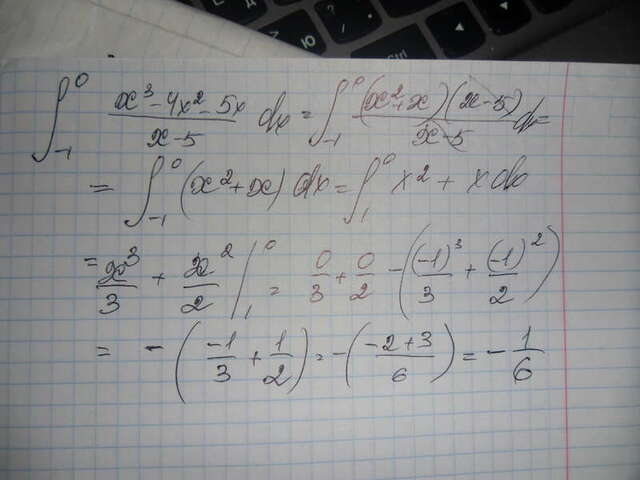 ∫₋₁⁰ (x³ - 4x² - 5x)/(x - 5) dx = ∫₋₁⁰ (x² + x)(x - 5)/(x - 5) dx =
= ∫₋₁⁰ (x² + x) dx = ∫₁⁰ x² + x dx
= x³/3 + x²/2 |₁⁰ = 0/3 + 0/2 - ((-1)³/3 + (-1)²/2)
= - (-1/3 + 1/2) = - ((-2 + 3)/6) = - 1/6